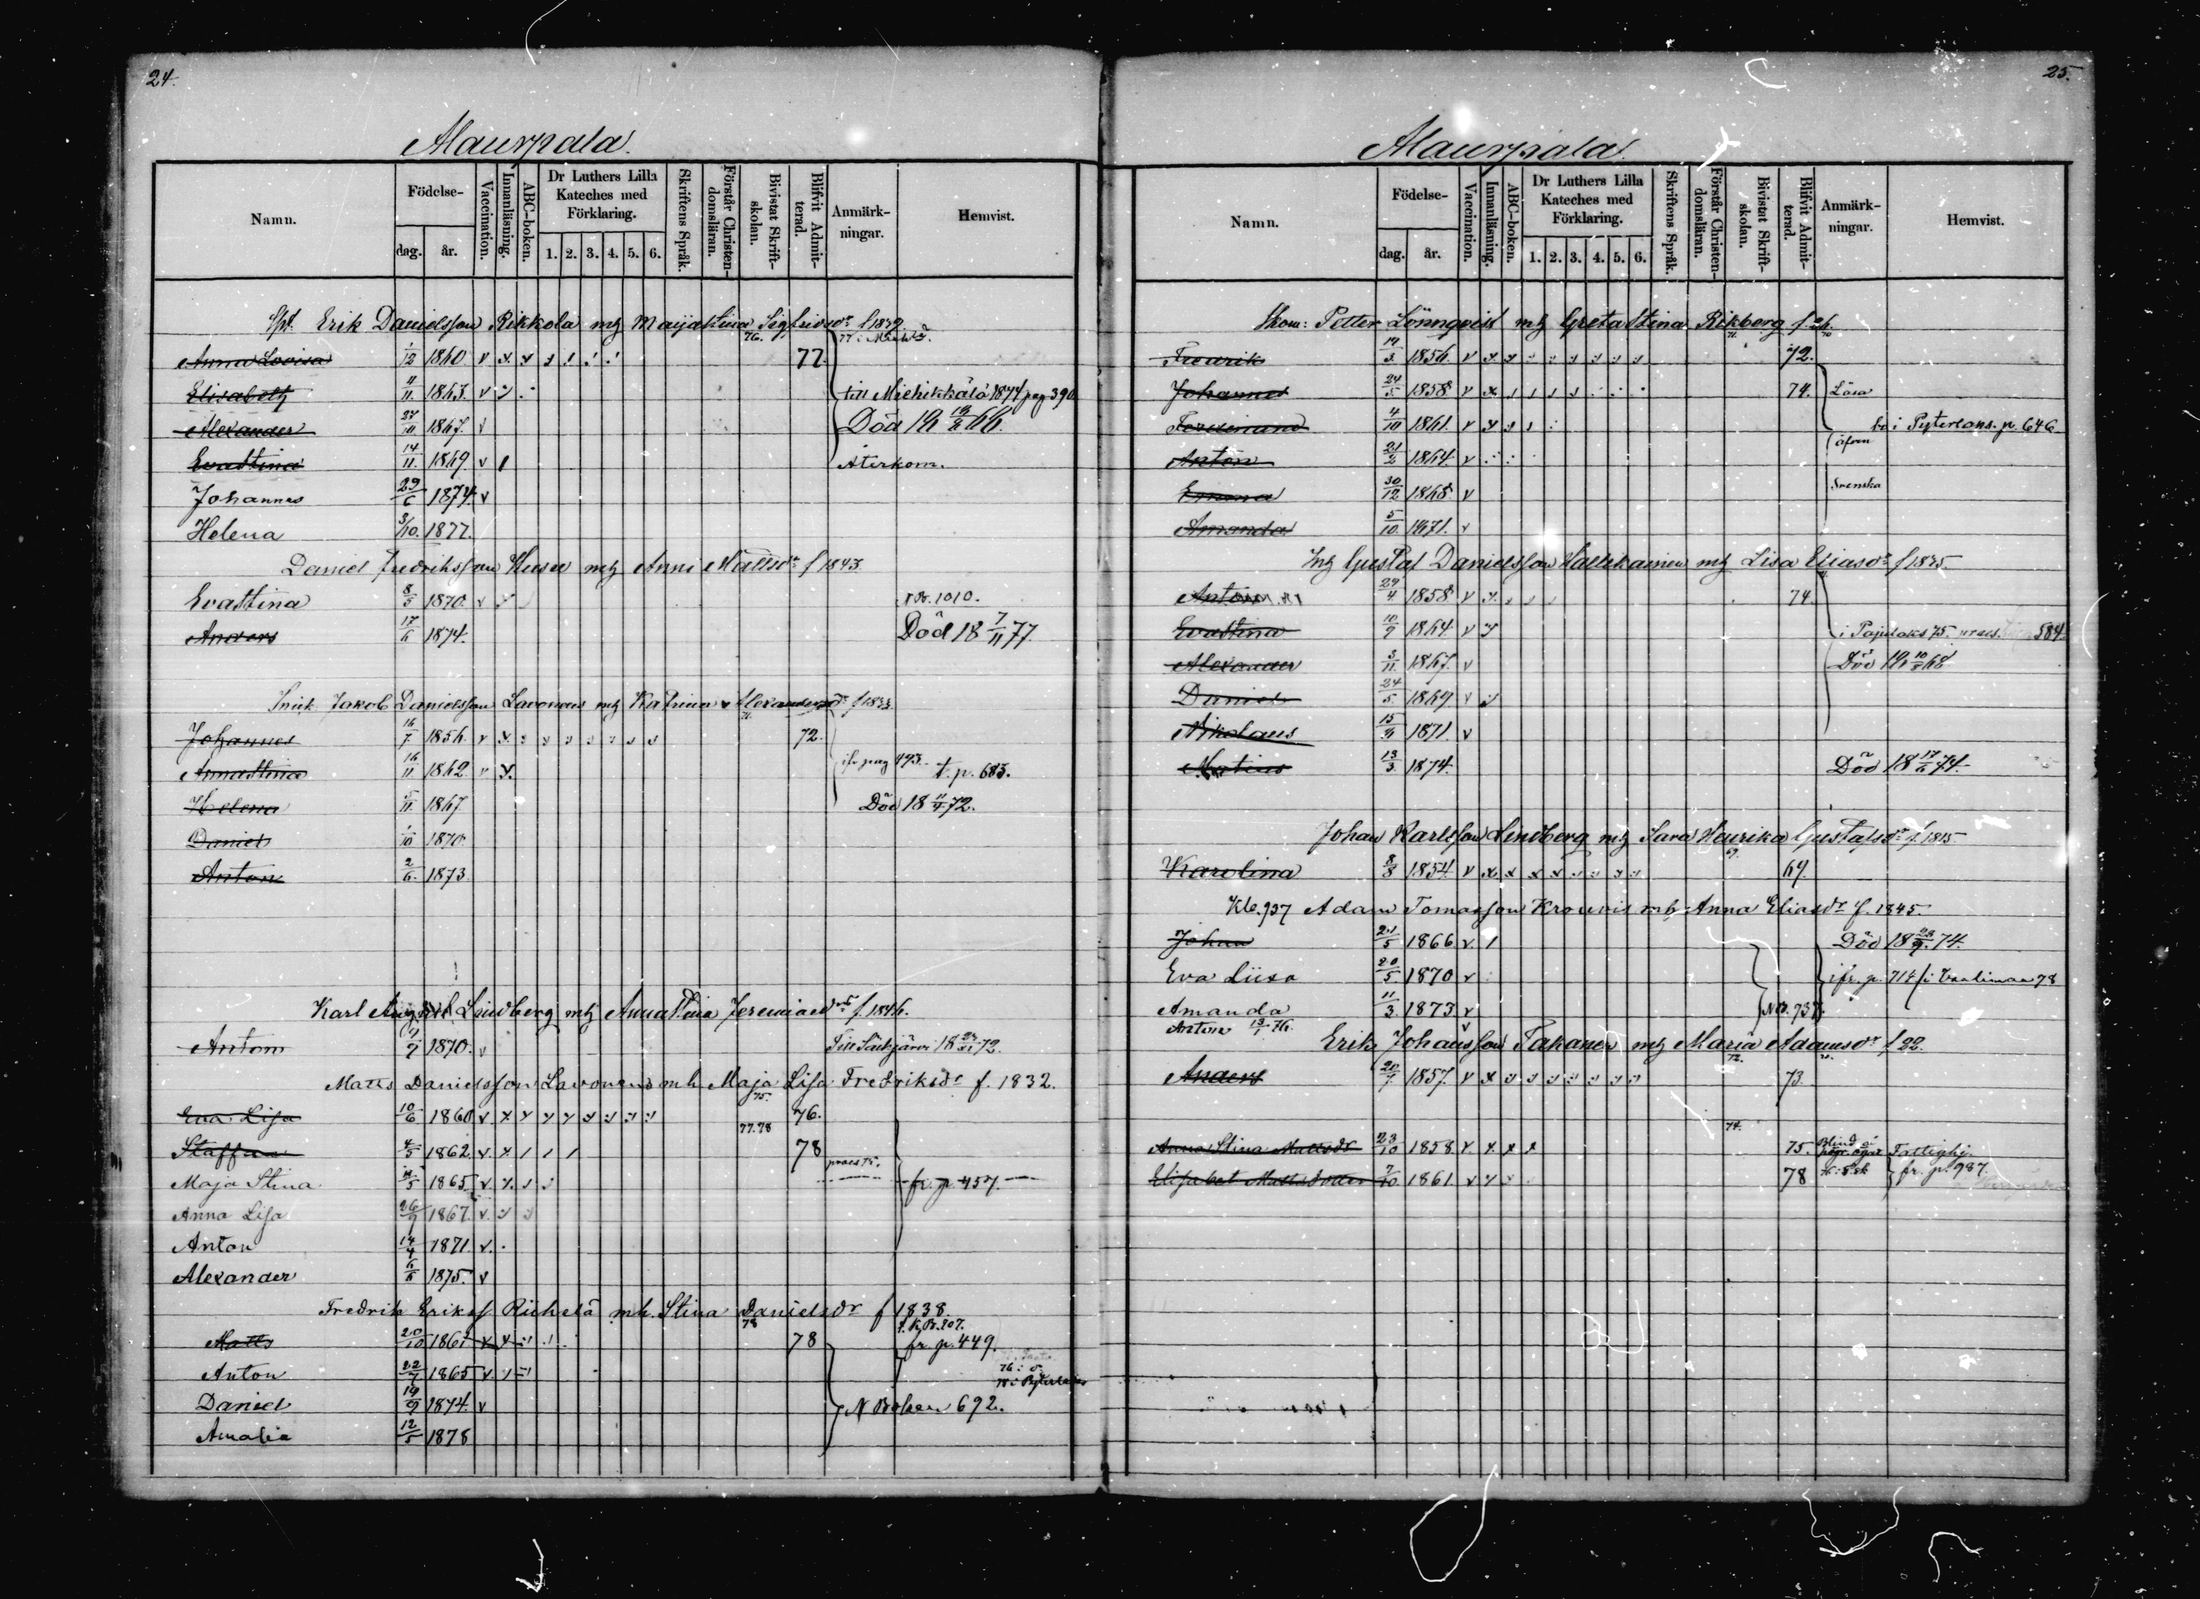 24.
Maurpala.
Namn. Födelse- dag. år. Vaccination. Innanläsning. ABC-boken. Dr Luthers Lilla Kateches med Förklaring. 1. 2. 3. 4. 5. 6. Skriftens Språk. Förstår Christen-domsläran. Bivistat Skrift-skolan. Blifvit Admit-terad. Anmärk-ningar. Hemvist.
Spt. Erik Danielsson Rikkola mh Maijastina Sigfridsdr f 1839.
76.
Anna Lovisa 1/12 1860 v 77
Elisabeth 11/11 1863. v till Miehikkälä 1874 pag 390
Alexander 27/10 1867. v Död 18 66.
Evastina 14/11. 1869 v Återkom.
Johannes 29/6 1874. v
Helena 3/10. 1877.
Daniel Fredriksson Husu mh Anni Mattsdr f 1843
Evastina 8/3 1870. v 1010.
Anders 17/6 1874. Död 18 7/11 77
Snick. Jakob Danielsson Lavonius mh Katrina Alexandersdr f 1833
Johannes 16/7 1856. v 72.
Annastina 16/11 1862. v pag 493. t. p. 683.
Helena 5/11 1867 Död 18 11/9 72.
Daniel 1/10 1870.
Anton 2/6. 1873.
Karl Lindberg mh Annastina Jeremiaedr f. 1846.
Anton 1870. v Till Säkjärvi 18 72.
Matts Danielsson Lavonens mh. Maja Lisa Fredriksdr f. 1832.
75.
Eva Lisa 10/6 1860 v. 76.
77.78
Staffan 4/5 1862. v. 78
Maja Stina 1865. v. fr. p. 457.
Anna Lisa 26/9 1867. v.
Anton 14/4 1871 v.
Alexander 6/8 1875. v
Fredrik Eriks. Riihelä mh. Stina Danielsdr f 1838.
78
Matts 20/10 1861 78 fr. p. 449.
Anton 22/7 1865 v.
Daniel 19/9 1874. v N Boken 692.
Amalia 12/5 1878
25.
Maurpala.
Namn. Födelse- dag. år. Vaccination. Innanläsning. ABC-boken. Dr Luthers Lilla Kateches med Förklaring. 1. 2. 3. 4. 5. 6. Skriftens Språk. Förstår Christen-domsläran. Bivistat Skrift-skolan. Blifvit Admit-terad. Anmärk-ningar. Hemvist.
Skom: Petter Lönnqvist mh Gretastina Rikberg
Fredrik 19/3 1856. v 72.
Johannes 24/5 1858 v 74. Läsa
Ferdinand 4/10 1861. v bo i Pyterlaks. p. 646
Anton 21/2 1864. v äfven
Emma 30/12 1868 v Svenska
Amanda 5/10 1871. v
Inh Gustaf Danielsson Hallikainen mh Lisa Eliasdr f 1835
Anton 29/4 1858 v 74.
Evastina 10/9 1864. v 584.
Alexander 3/11. 1867. v Död 18 10/8 68
Daniel 24/5 1869 v
Nikolaus 15/9 1871 v
Matius 13/3 1874. Död 18 17/6 74.
Johan Karlsson Lindberg mh Sara Henrika Gustafsdr f. 1815
69.
Karolina 8/8 1854. v 69.
Kb. 937 Adam Tomasson Krouvis mh. Anna Eliasdr f. 1845.
Johan 21/5 1866 v. Död 18 23/9. 74.
Eva Liisa 20/5. 1870 v ifr. p. 714 i Vaalimaa 78
Amanda 11/3. 1873. v NB. 737.
Anton 13/1 76. v
Erik Johansson Takanen mh Maria Adamsdr f 22.
72.
Anders 20/7 1857. v 73.
74.
Anna Stina Mattsdr 23/10 1858 v. 75. Blind å Fattighj.
Elisabet Mattsdotter 7/10 1861. v 78 fr. p. 987.